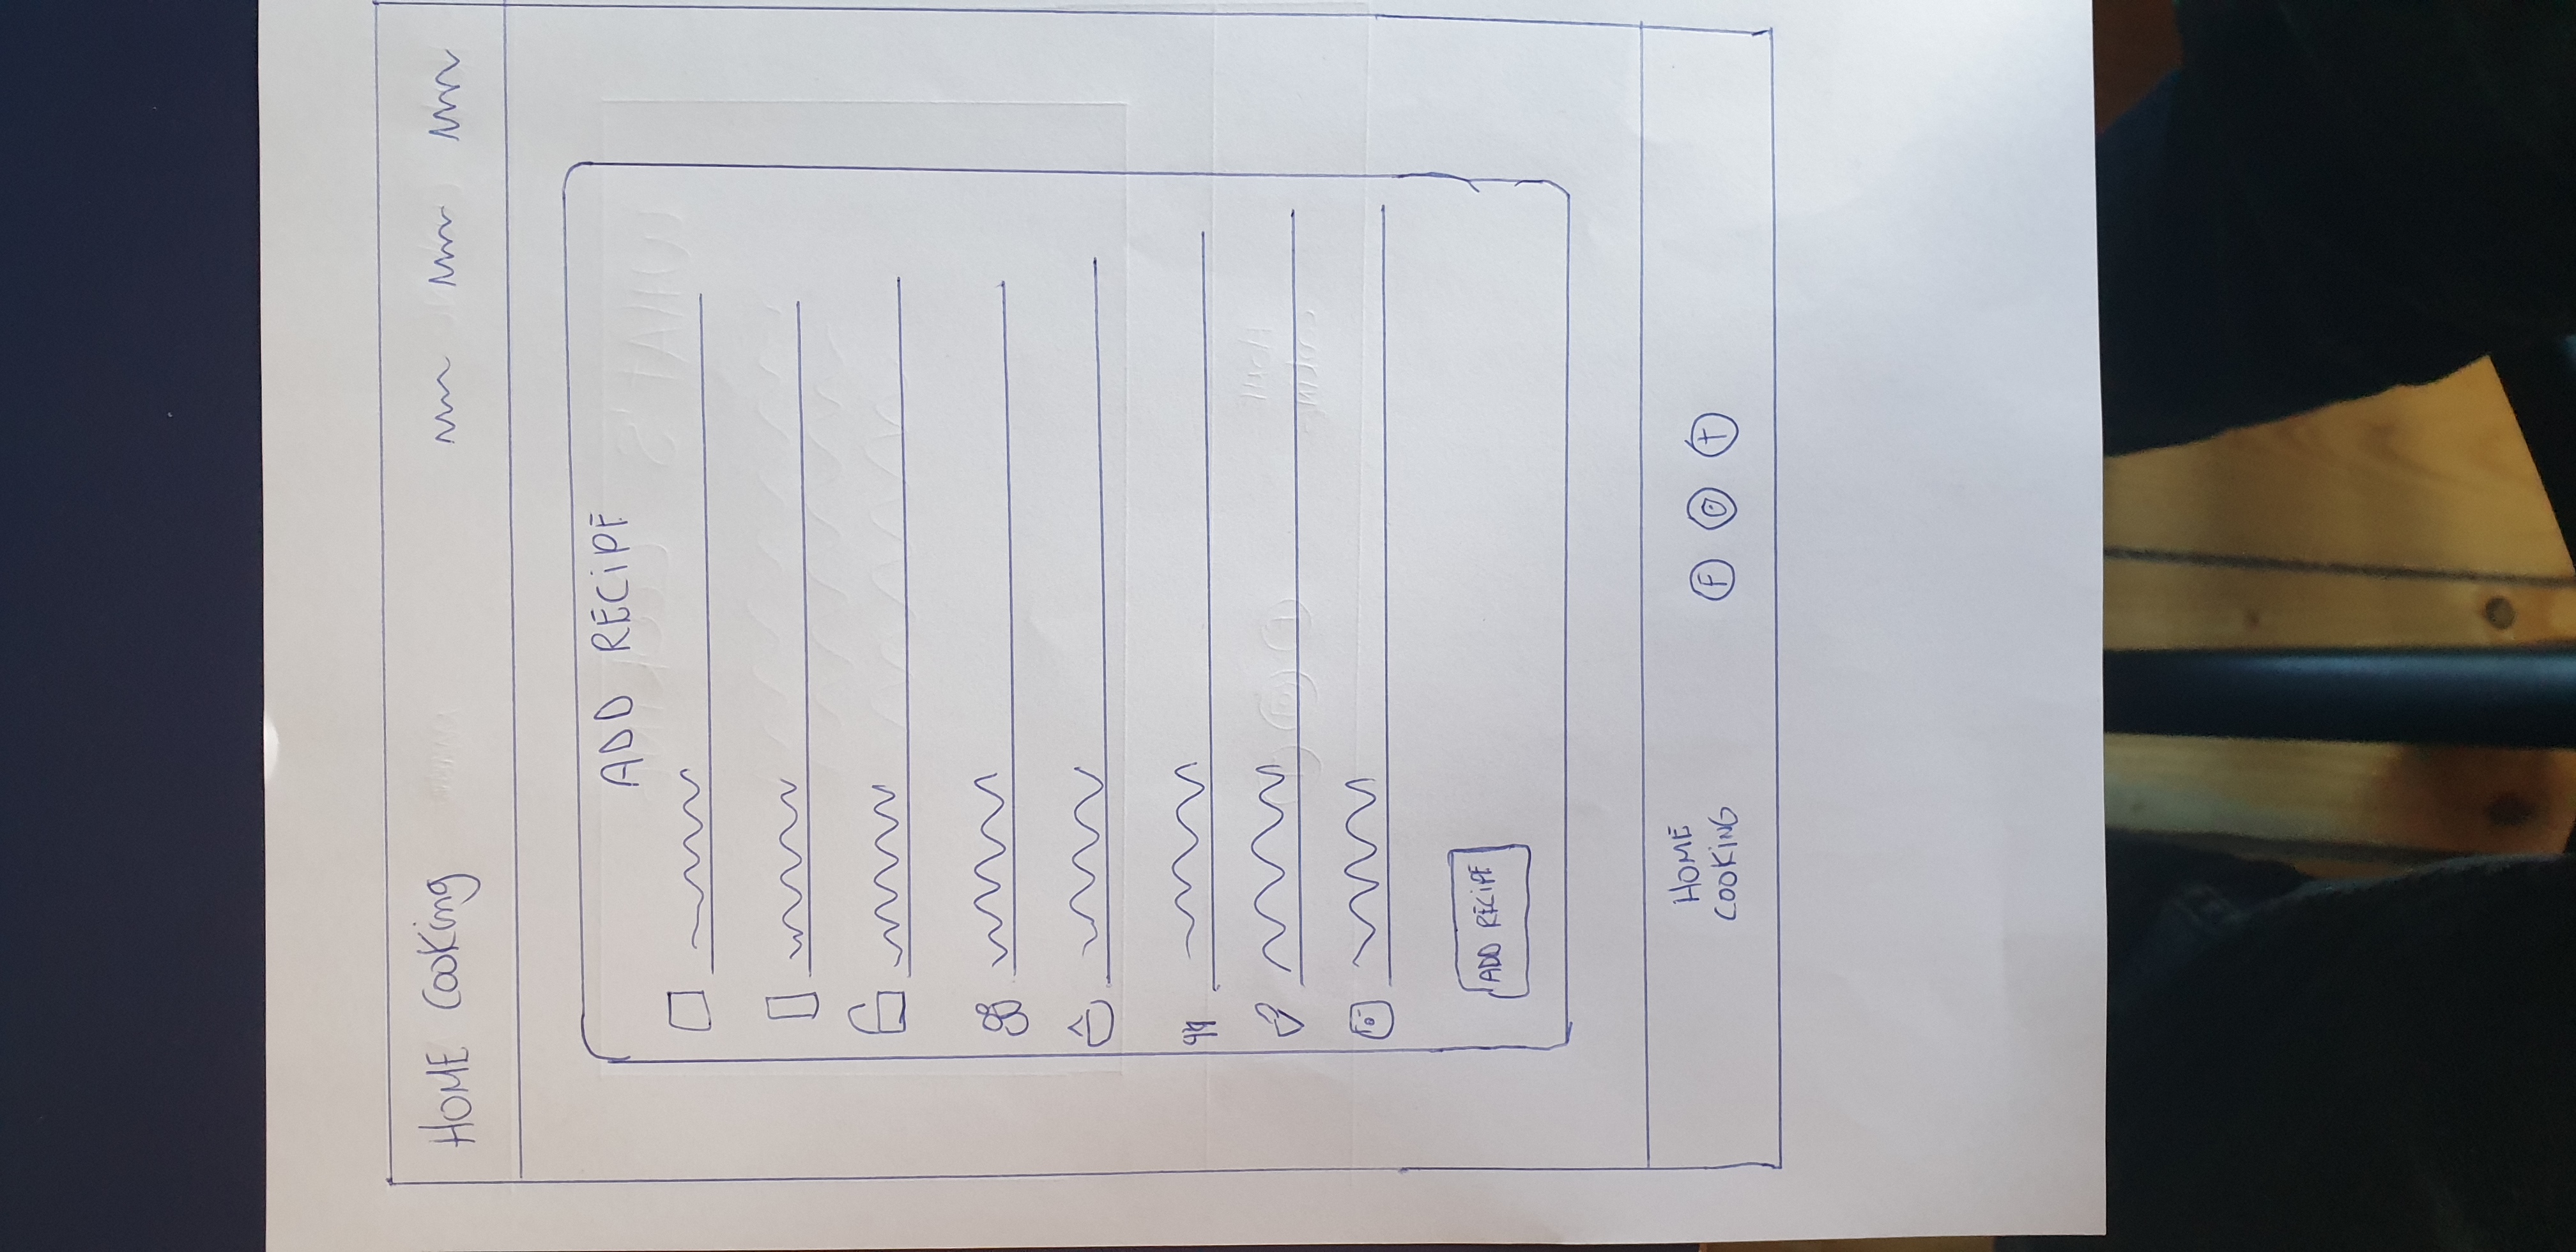 HOME Cooking
ADD RECIPE
ADD RECIPE
HOME
COOKING
F
T